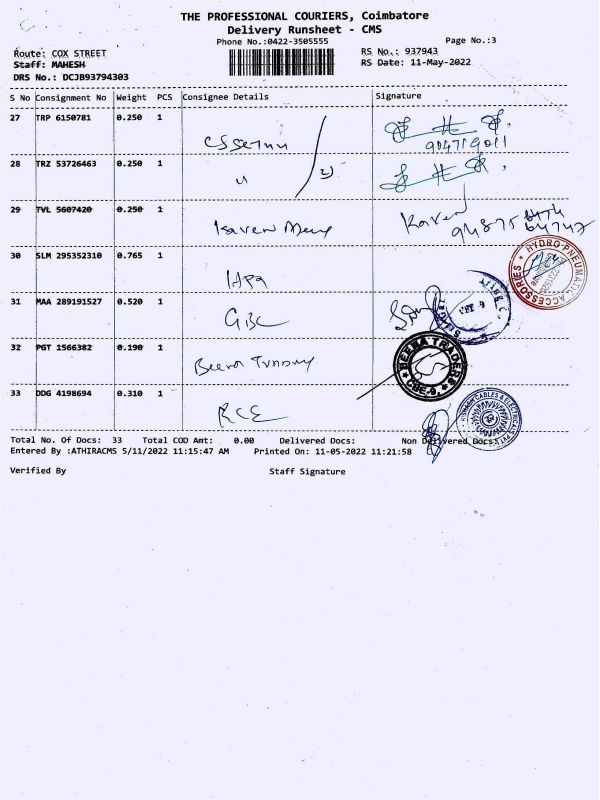 THE PROFESSIONAL COURIERS, Coimbatore
Delivery Runsheet - CMS
Phone No.:0422-3505555
Page No.:3
Route: COX STREET
RS No.: 937943
Staff: MAHESH
RS Date: 11-May-2022
DRS No.: DCJB93794303
S No Consignment No Weight PCS Consignee Details Signature
27 TRP 6150781 0.250 1
904719011
28 TRZ 53726463 0.250 1
29 TVL 5607420 0.250 1 Kaven
30 SLM 295352310 0.765 1
HYDRO PNEUMATIC ACCESSORIES
31 MAA 289191527 0.520 1 GBC
32 PGT 1566382 0.190 1 Beena
BEEMA TRADERS CBE-9.
33 DDG 4198694 0.310 1 RCE
CABLES & ELECTRICALS PVT
Total No. Of Docs: 33 Total COD Amt: 0.00 Delivered Docs: Non Delivered Docs:
Entered By :ATHIRACMS 5/11/2022 11:15:47 AM Printed On: 11-05-2022 11:21:58
Verified By Staff Signature